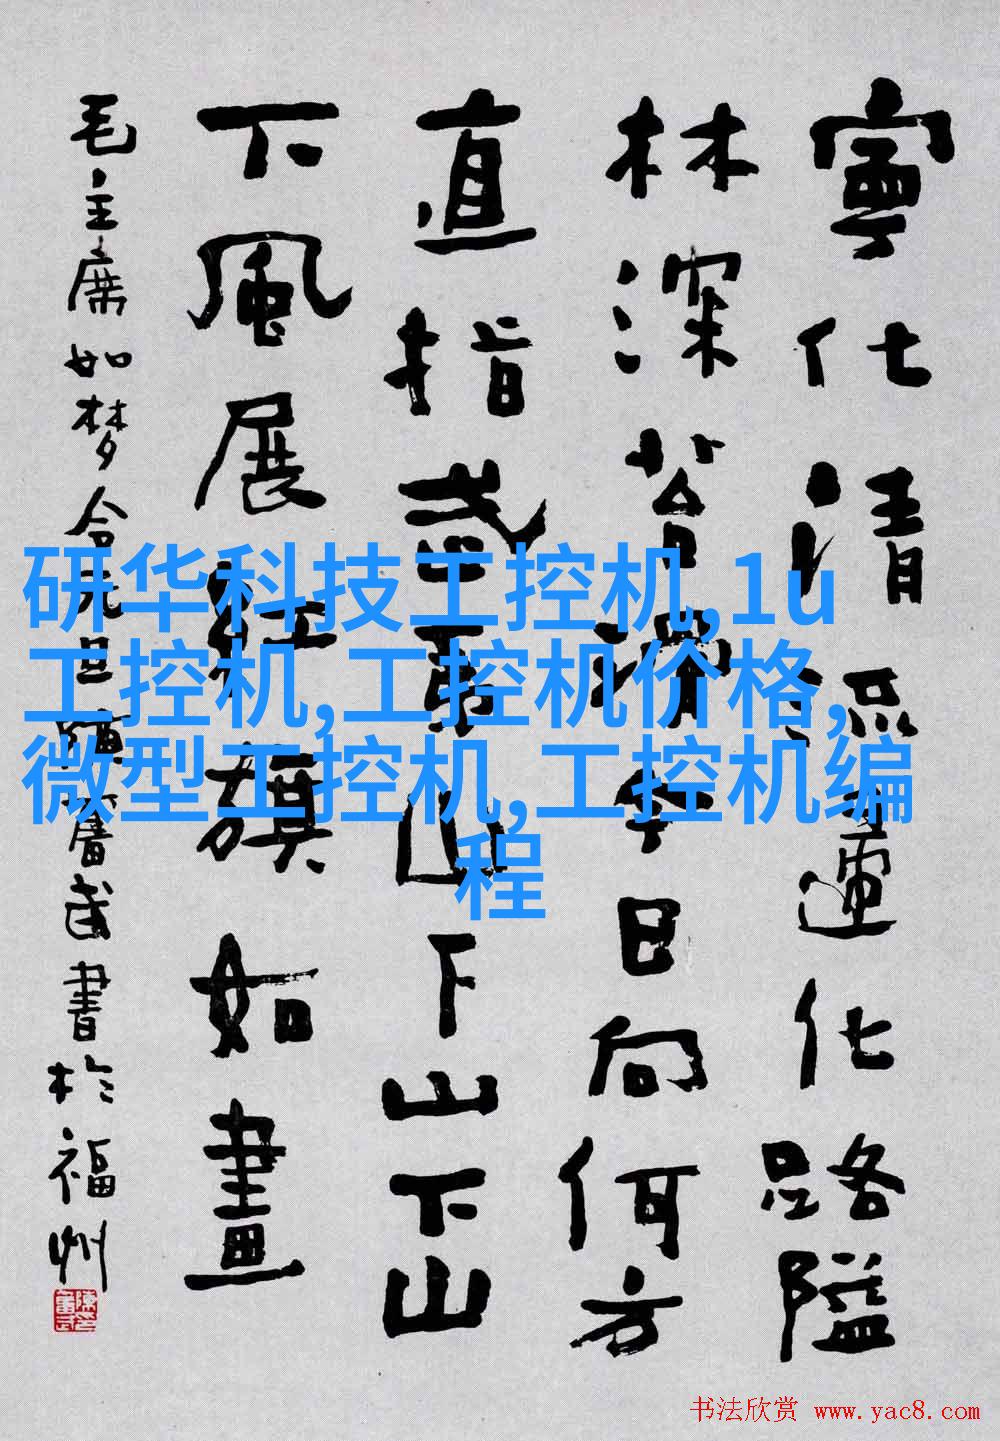 寧化清流歸化路隘
林深苔滑今日向何方
直指武夷山下山下山
下風展紅旗如畫
毛主席如梦令元旦陳奮武書於福州
研华科技工控机,1u
工控机,工控机价格,
微型工控机,工控机编
程
书法欣赏 www.yac8.com